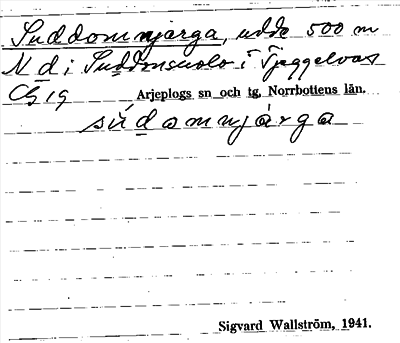 Suddomnjarga, udde 500 m
N d i Suddomsuolo i Tjeggelvas
Cg 19 Arjeplogs sn och tg, Norrbottens län.
sùdomnjárga
Sigvard Wallström, 1941.